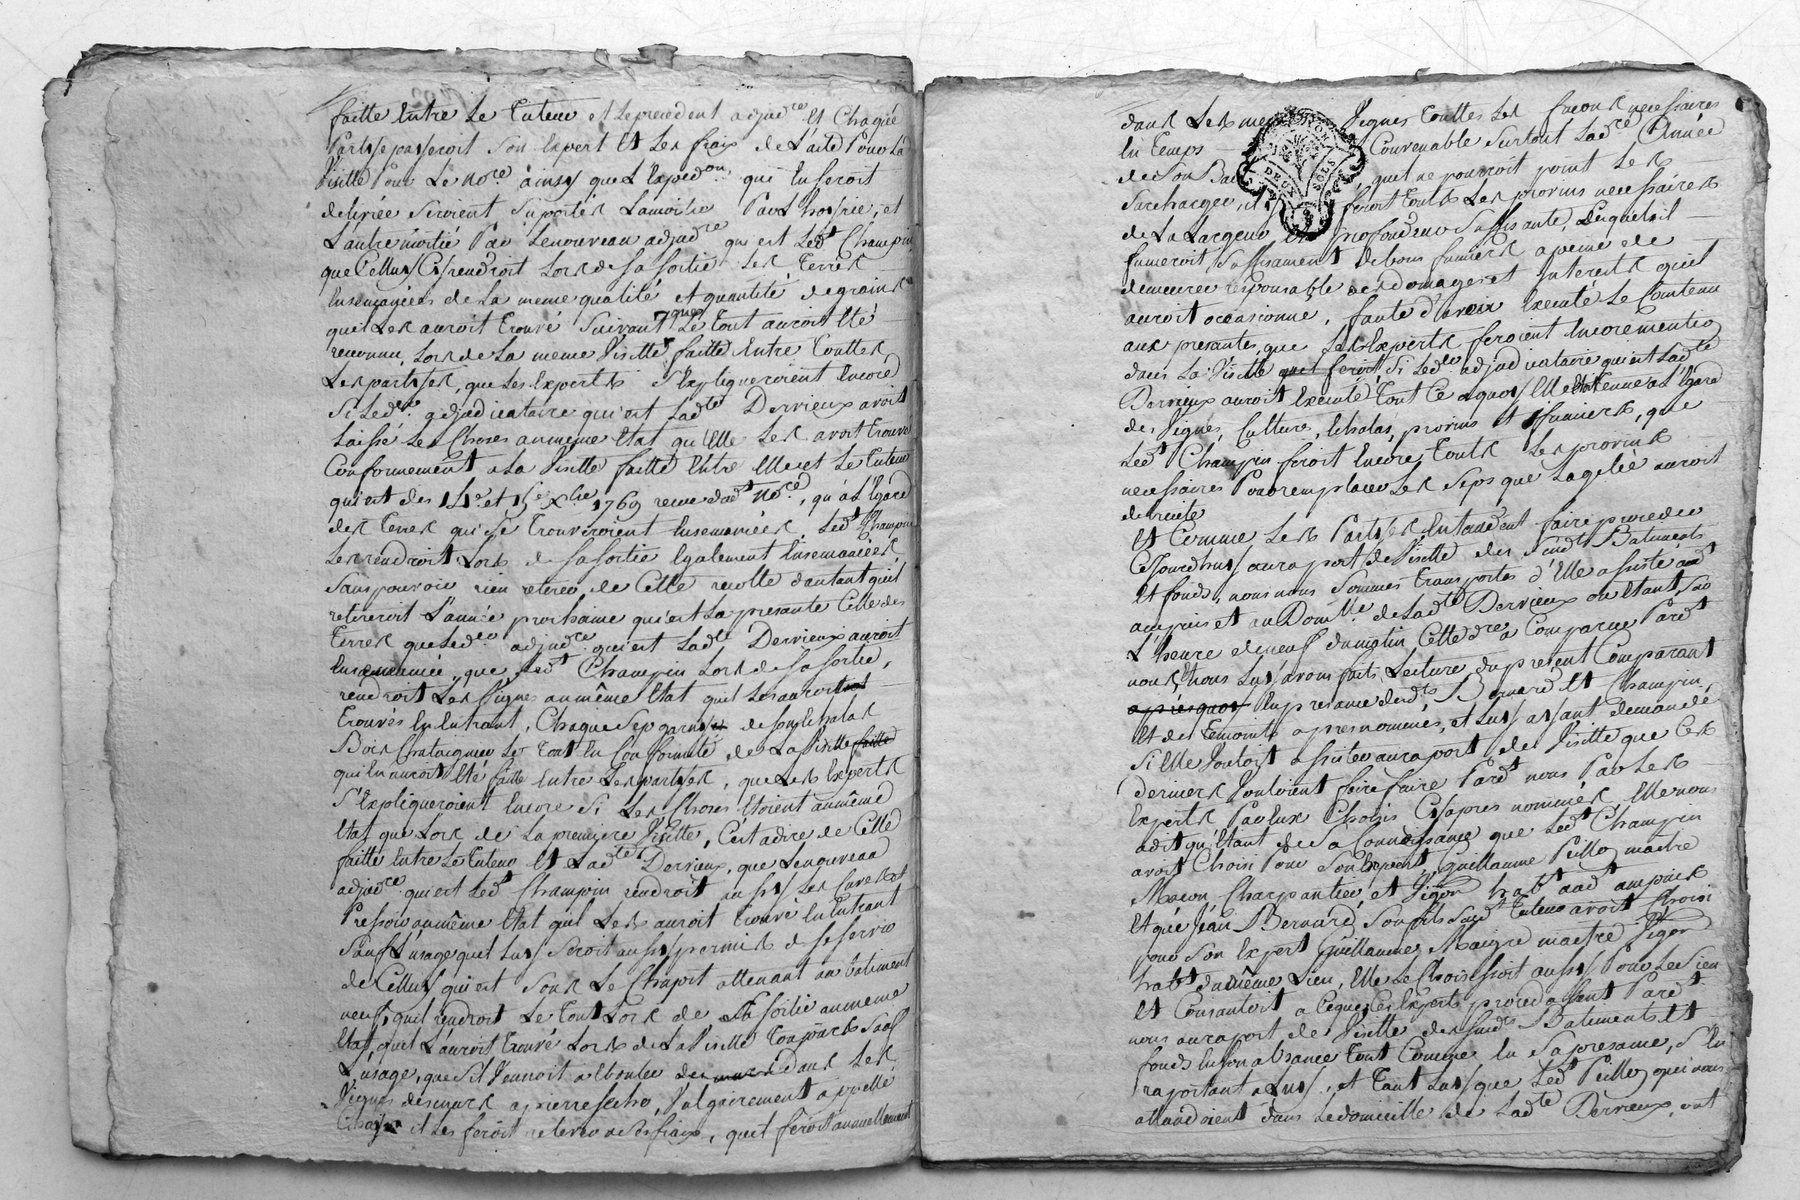 faitte Entre Le Tuteur et Le precedent adjud.re Et Chaque
Partie payeroit son Expert Et Les fraix de L'acte Pour La
Visitte Pour Le No.re ainsy que L'Exped.on qui En seroit
delivrée seroient suportés La moitié Par L'hoirie, et
L'autre moitié Par Le nouveau adjud.re qui est Led.t Champin
que Celluy Cy rendroit Lors de sa sortie Les Terres
Ensemancées de La meme qualité et quantité de grains
quil Les auroit trouvé suivant que Le Tout auroit Eté
reconnu Lors de La meme Visitte faitte Entre Touttes
Les parties, que Les Experts s'Expliqueroient Encore
Si Led. adjudicataire qui est Lad.te Dervieux avoit
Laissé Les Choses au même Etat qu'Elle Les avoit trouvé
Conformement a La Visitte faitte Entre Elle et Le Tuteur
qui est des 14 et 15e Xbre 1769 recue dud.t No.re, qu'à L'Egard
des Terres qui se trouveroient Ensemancées Led.t Champin
Les rendroit Lors de sa sortie Egalement Ensemancées
sans pouvoir rien retirer de Cette recolte d'autant qu'il
retireroit L'année prochaine qu'est La presante Celle des
Terres que Led. adjud.re qui est Lad.te Dervieux auroit
Ensemancé, que Led.t Champin Lors de sa sortie,
rendroit Les Vignes au même Etat quil Les auroit
trouvés En Entrant, Chaque Sep garni de son Echalas
Bois Chataignier Le Tout En Conformité de La Visitte faitte
qui En auroit Eté faitte Entre Les parties, que Les Experts
s'Expliqueroient Encore si Les Choses Etoient au même
Etat que Lors de La premiere Visitte, C'est a dire de Celle
faitte Entre Le Tuteur Et Lad.te Dervieux, que Le nouveau
adjud.re qui est Led.t Champin rendroit aussy Les Caves Et
Pressoir au même Etat quil Les auroit trouvé En Entrant
sauf L'usage quil Luy seroit aussy permis de se servir
de Celluy qui est sous Le Chapit attenant au batiment
neuf, quil rendroit Le Tout Lors de sa sortie au meme
Etat quil L'auroit trouvé Lors de La Visitte Toujours sauf
L'usage, que S'il Venoit a Ebouler des murs Dans Les
Vignes des murs a pierre seche, Vulgairement appellé
il Les feroit relever a ses fraix, quil feroit annuellement
dans Les mes Vignes Touttes Les facons necessaires
En Temps Convenable surtout Lad.re Année
de son Bail, quil ne pourroit point Les
surcharger, il feroit Touts Les provins necessaires
de La Largeur Et profondeur suffisante, Lesquels il
fumeroit suffisament de bons fumiers a peine de
demeurer responsable des domages et Interests qu'il
auroit occasionné, faute d'avoir Executé Le Contenu
aux presantes, que Les Experts feroient Encore mention
dans La Visitte quil feroit Si Led. adjudicataire qui est Lad.te
Dervieux auroit Executé Tout Ce a quoy Elle Etoit Tenue a L'Egard
des Vignes, Culture, Echalas, provins Et fumiers, que
Led.t Champin feroit Encore Touts Les provins
necessaires Pour remplacer Les Seps que La gelée auroit
detruits
Et Comme Les Parties Entendent faire proceder
Cejourd'huy au raport de Visitte des susd.ts Batiments
Et fonds, nous nous sommes transportés d'Elle assisté aud.t
ampuis et au Dom.lle de Lad.te Dervieux ou Etant, Sur
L'heure de neuf du matin, Cette d.re a Comparue Pard.t
nous, Et nous Luy avons faits Lecture du present Comparant
apres quoy En presance desd.ts Bernard Et Champin,
Et des Temoins apres nommés, et Luy ayant demandé
si Elle Vouloit assister au raport de Visitte que Ces
derniers Vouloient faire faire Pard.t nous Par Les
Experts Par Eux Choisis Cyapres nommés Elle nous
a dit qu'Etant de sa Connoissance que Led.t Champin
avoit Choisi Pour son Expert Guillaume Peillon maitre
Macon, Charpantier, et Vigon hab.t aud.t ampuis
Et que Jean Bernard, son fils susd.t Tuteur avoit Choisi
pour son Expert Guillaume Maigre maitre Vigon
hab.t du même Lieu, Elle Le Choisissoit aussy Pour Le Sien
Et Consantoit a Ceque Ces Experts procedassent Pard.t
nous au raport de Visitte des susd.ts Batiments Et
fonds En son absance Tout Comme En sa presance, S'En
raportant a Luy, et Tant Luy que Led.t Peillon qui nous
attandoient dans Le domicille de Lad.te Dervieux, ont
DEUX SOLS